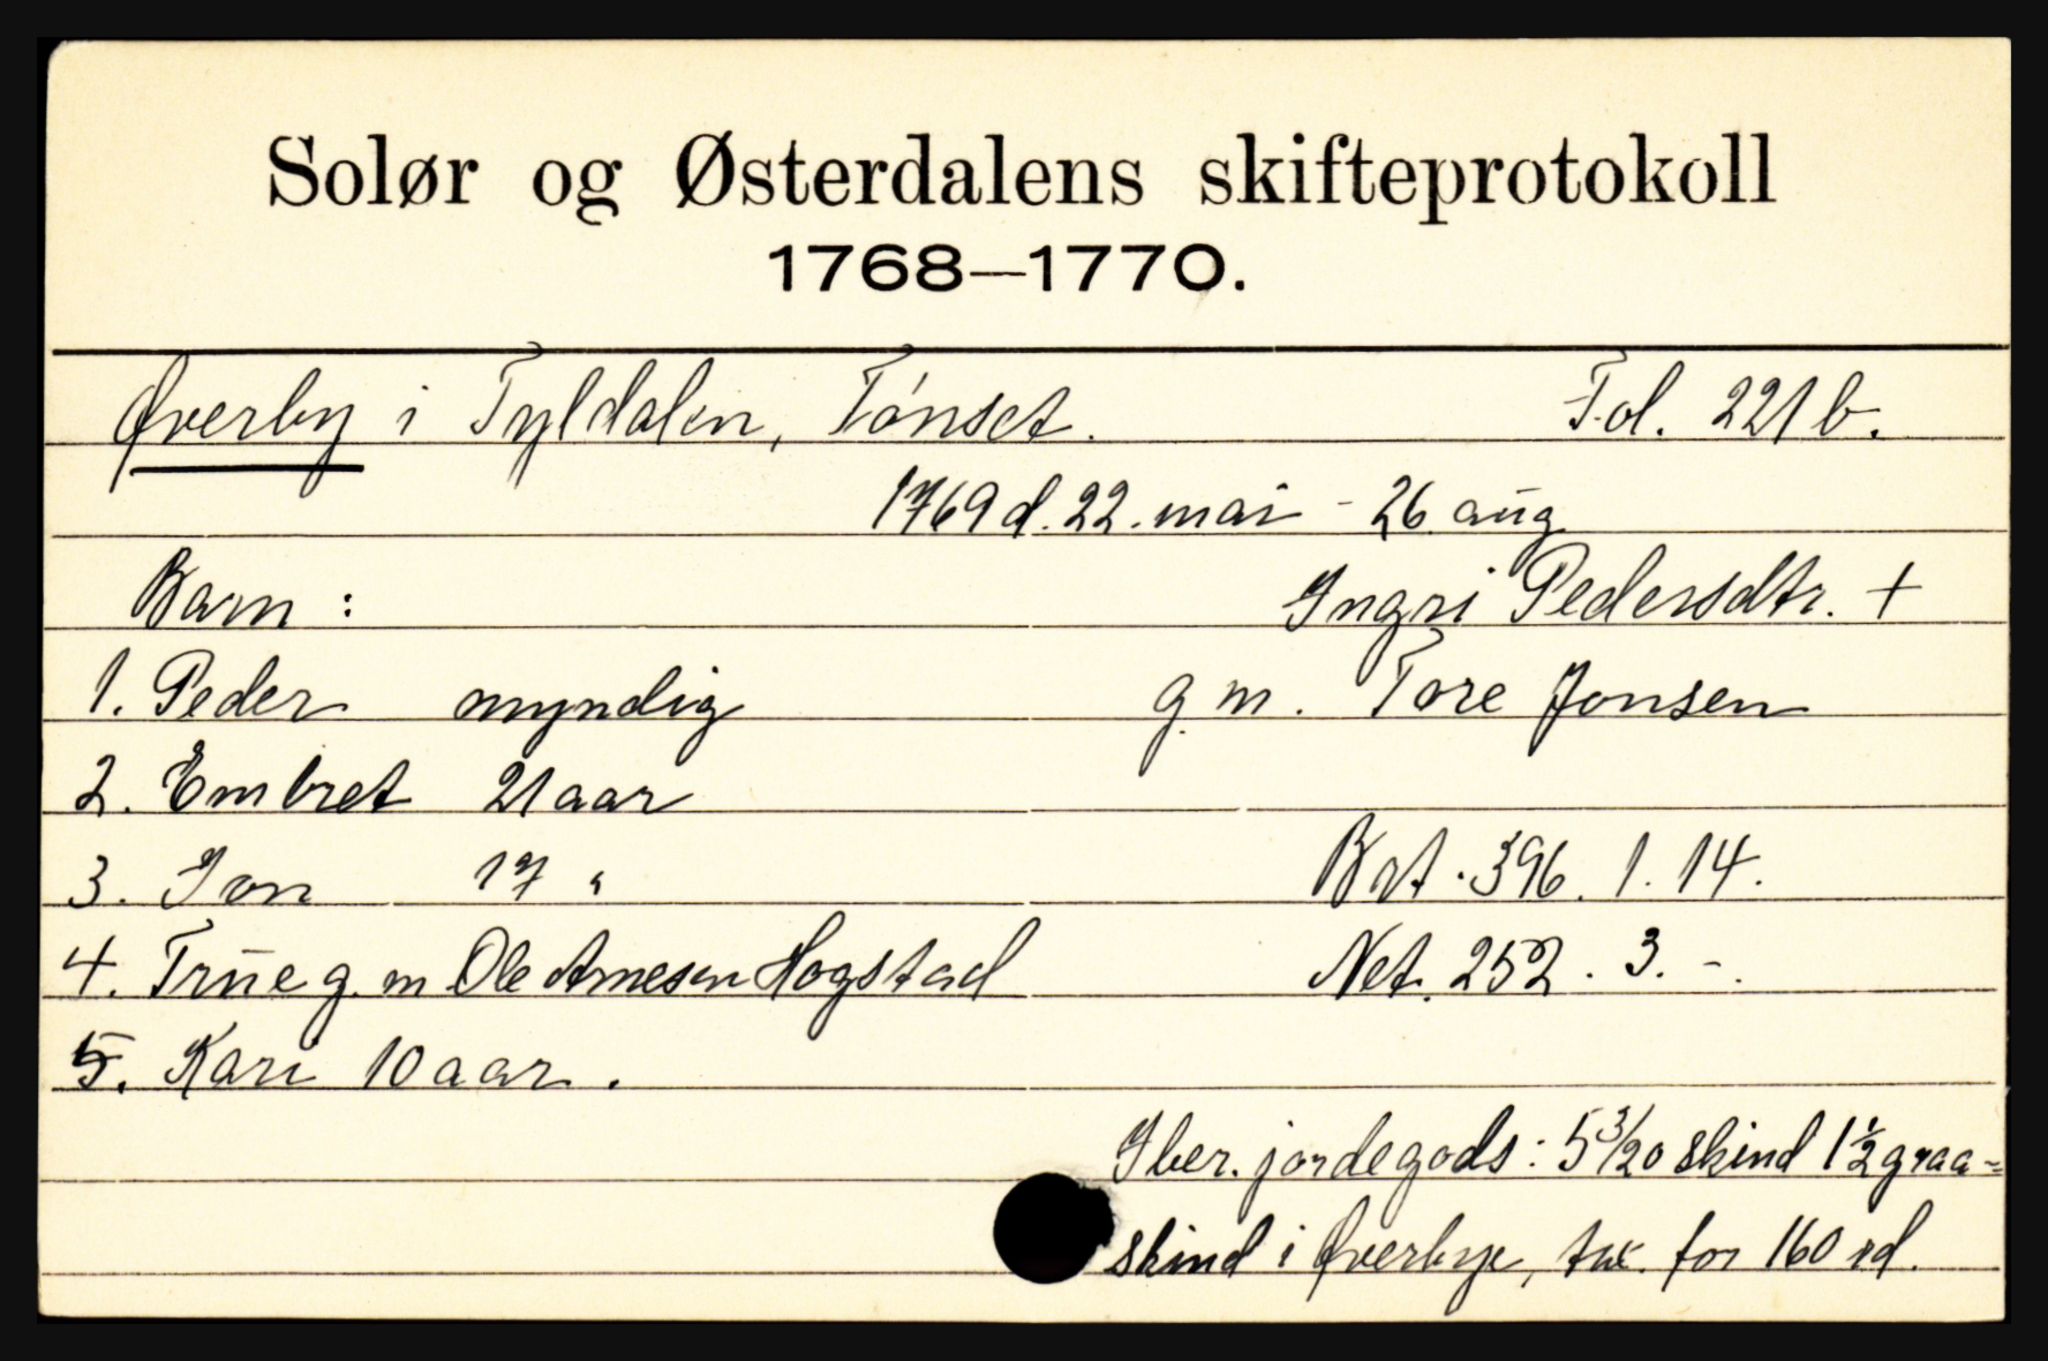 Solør og Østerdalens skifteprotokoll
1768—1770.
Øverby i Tyldalen, Tønset. Fol. 221 b.
1769 d. 22. mai - 26 aug
Barn : Ingri Pedersdtr. +
1. Peder myndig g. m. Tore Jonsen
2. Embret 21 aar
3. Jon 17 " Brt. 396. 1. 14.
4. True g. m Ole Arnesen Hogstad Net. 252. 3. -.
5. Kari 10 aar.
Iber. jordegods: 5 3/20 skind 1 1/2 graa-
skind i Øverbye, tax. for 160 rd.